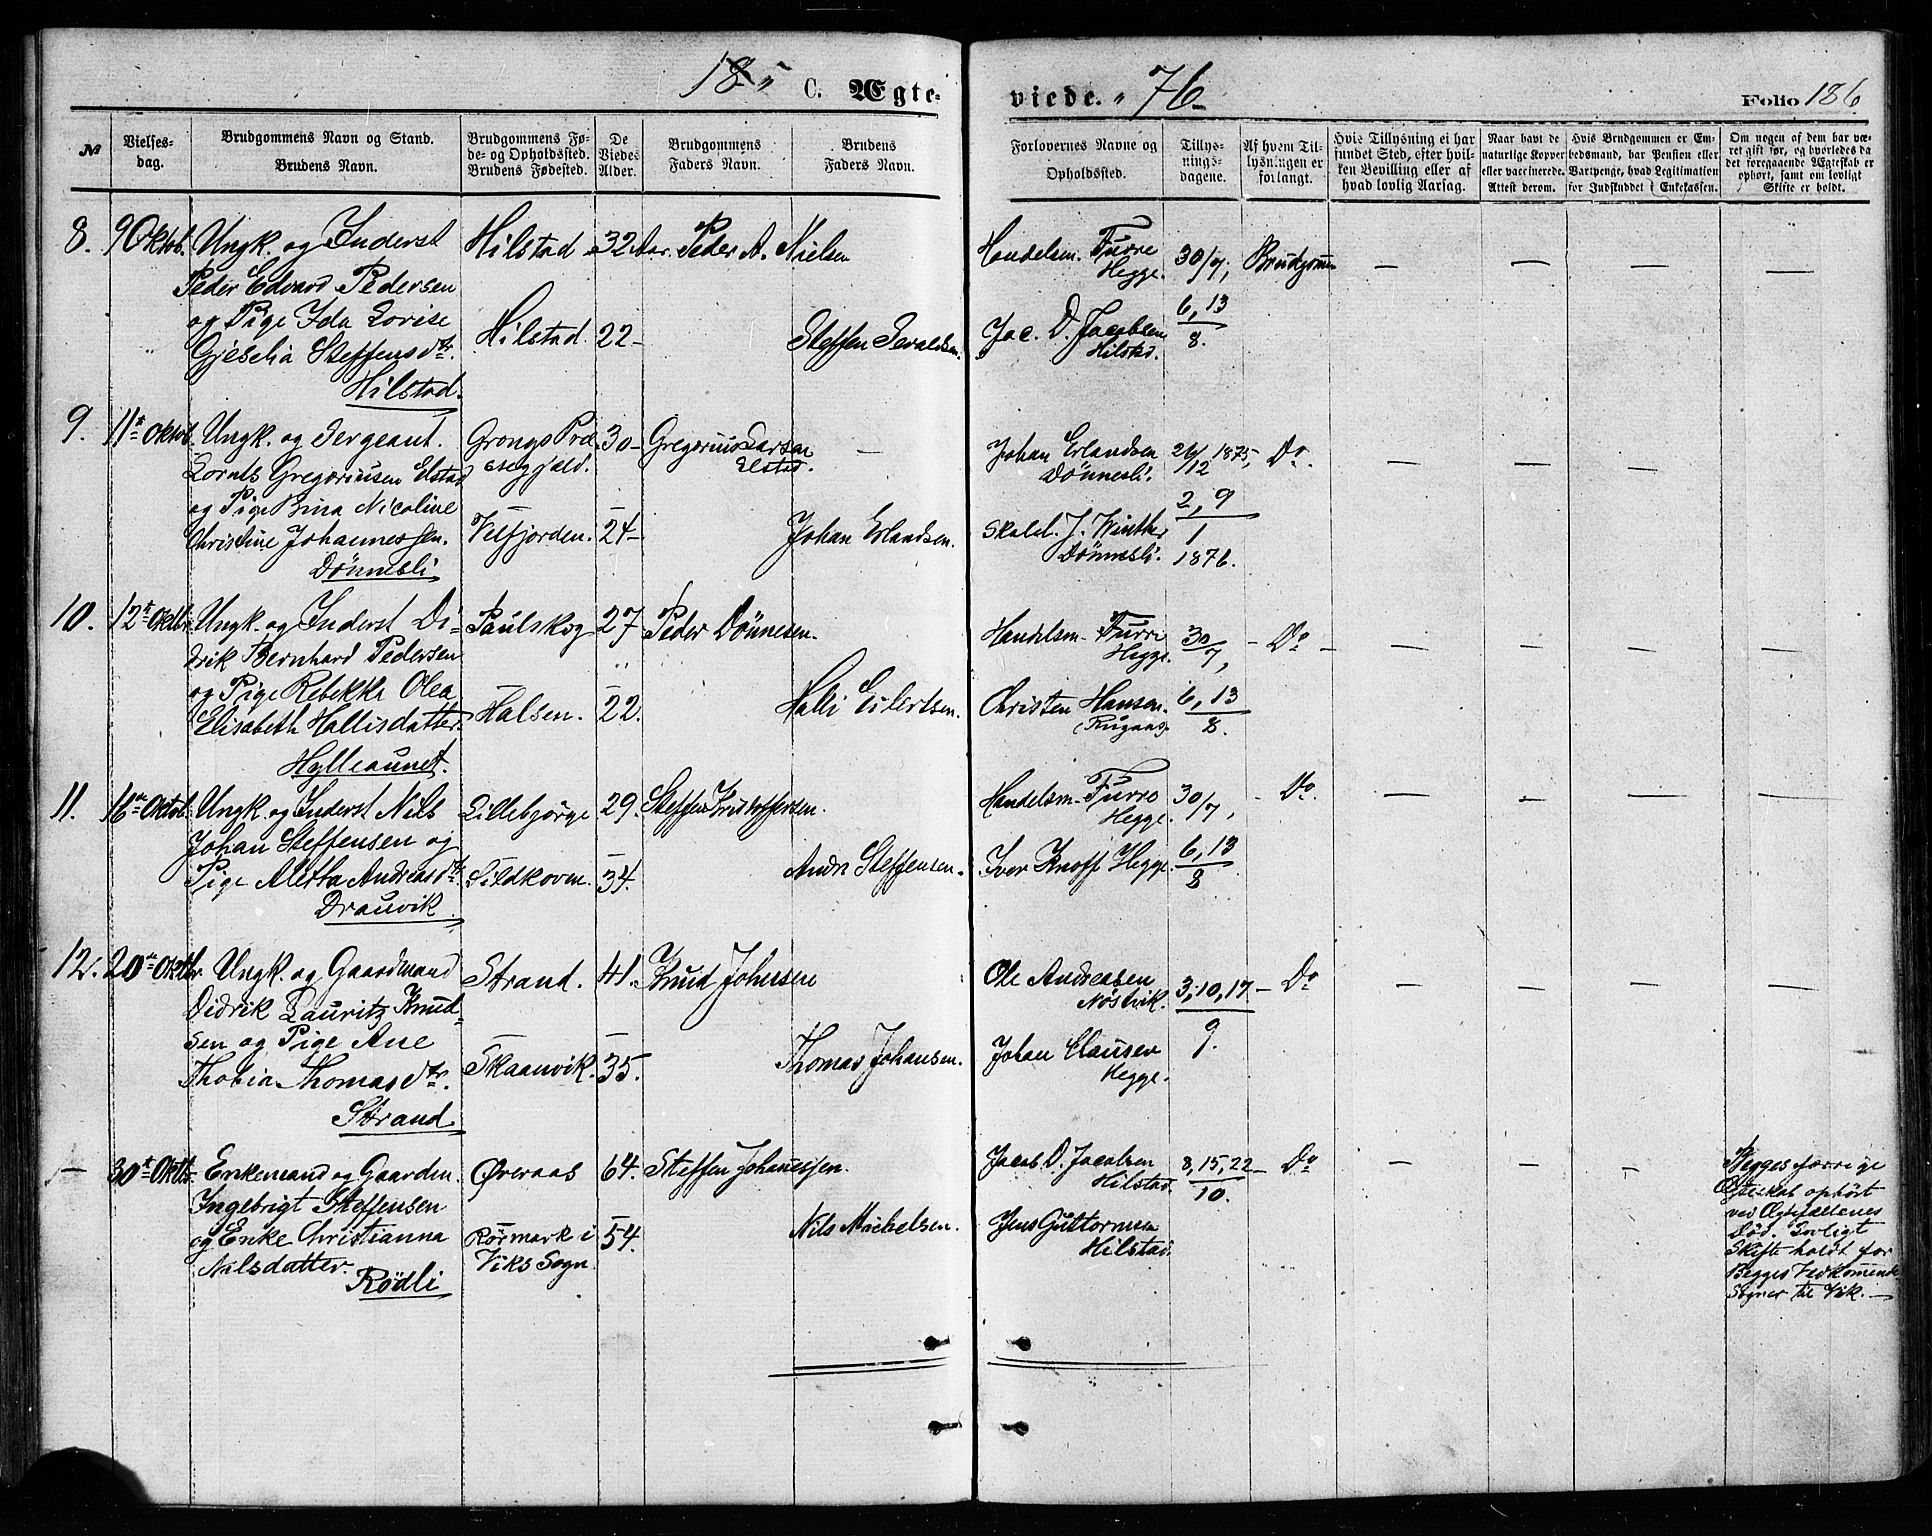 18 „ C. Ægteviede. „ 76
Folio 186
№
Vielsesdag.
Brudgommens Navn og Stand.
Brudens Navn.
Brudgommens Føde- og Opholdssted.
Brudens Fødested.
De Viedes Alder.
Brudgommens Faders Navn.
Brudens Faders Navn.
Forlovernes Navne og Opholdssted.
Tillysningsdagene.
Af hvem Tillysningen er forlangt.
Hvis Tillysning ei har fundet Sted, efter hvilken Bevilling eller af hvad lovlig Aarsag.
Naar havt de naturlige Kopper eller vaccinerede. Attest derom.
Hvis Brudgommen er Embedsmand, har Pension eller Vartpenge, hvad Legitimation for Indskuddet i Enkekassen.
Om nogen af dem har været gift før, og hvorledes da det foregaaende Ægteskab er ophørt, samt om lovligt Skifte er holdt.
8. 9 Oktob. Ungk. og Inderst Hilstad 32 Aar. Peder A. Nielsen Handelsm. Furre 30/7, Brudgommen — — — —
Peder Edvard Pedersen Hegge.
og Pige Ida Lovise Hilstad 22 — Steffen Sevaldsen. Jac. D. Jacobsen 6, 13
Gjeselia Steffensdtr. Hilstad. 8.
Hilstad.
9. 11te Oktob. Ungk. og Sergeant. Grongs Præ- 30 — Gregorius Larsen — Johan Erlandsen 26/12 1875, Do. — — — —
Lornts Gregoriusen Elstad stegjæld. Elstad. Dönnesli.
og Pige Bina Nicoline 2, 9
Christine Johannessen. Velfjorden. 24 — Johan Erlandsen. Skolel. J. Winther 1
Dönnesli Dönnesli. 1876.
10. 12te Oktbr. Ungk. og Inderst Di- Paulskog 27 Peder Dönnesen. Handelsm. Furre 30/7, — Do — — — — —
drik Bernhard Pedersen Hegge.
og Pige Rebekka Olea Halsen. 22. Halli Eilertsen. Christen Hansen 6, 13
Elisabeth Hallisdatter. 8.
Hylleaunet.
11. 16de Oktob. Ungk. og Inderst Nils Lillebjörge 29. Steffen Kristoffersen. Handelsm. Furre 30/7, — Do. — — — —
Johan Steffensen og Hegge.
Pige Aletta Andreasdtr. Sildkoven. 34. Andr Steffensen. Iver Knoff Hegge. 6, 13
Drauvik. 8
12. 20de Oktbr. Ungk. og Gaardmand Strand. 41. Knud Johnsen Ole Andreasen 3, 10, 17 — Do — — — —
Didrik Lauritz Knud- Nöstvik. 9.
sen og Pige Ane Thomas Johansen. Johan Clausen
Thobia Thomasdtr. Skaanvik. 35. Hegge.
Strand
— 30te Oktbr. Enkemand og Gaardm. Øveraas 64. Steffen Johannssen. Jacob D. Jacobsen 8, 15, 22 — Do — — — Begges forrige
Ingebrigt Steffensen Hilstad. 10. Ægteskab ophört
og Enke Christianna Rörmark i 54. Nils Michelsen. Jens Guttormsen ved Ægtefælenes
Nilsdatter. Viks Sogn. Hilstad. Död. Lovligt
Rödli Skifte holdt for
Begges Vedkommende
Sogner til Vik. —